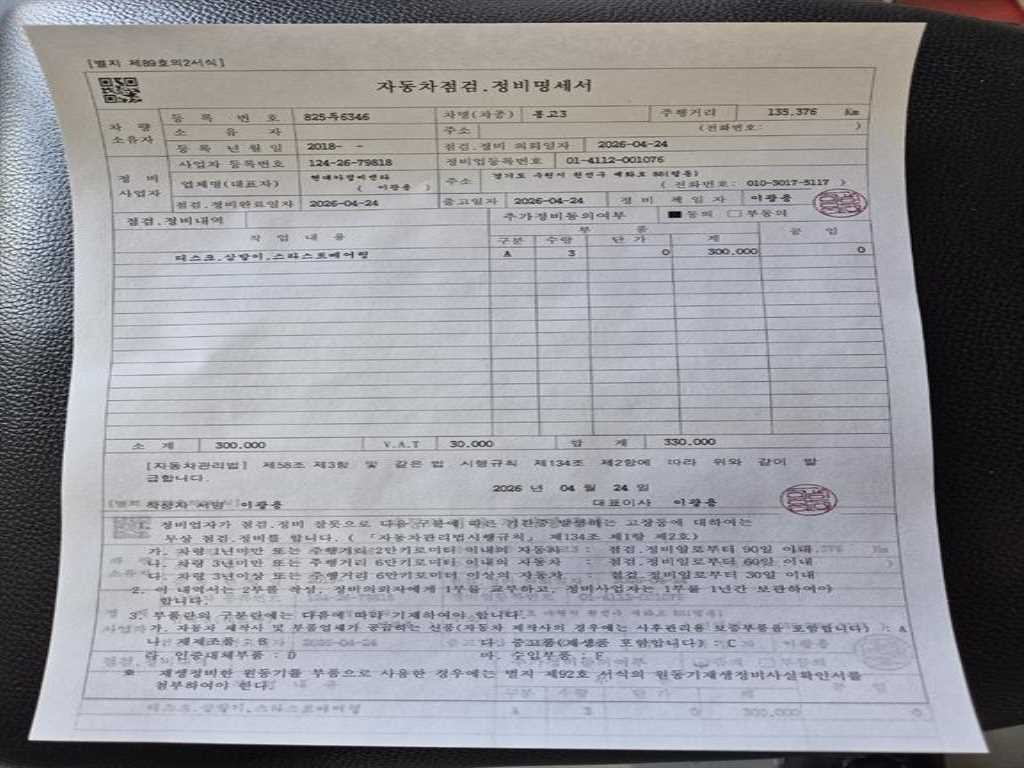 [별지 제89호의2서식]
자동차점검.정비명세서
차 량 소유자
등 록 번 호 825두6346 차명(차종) 봉고3 주행거리 135,376 Km
소 유 자 주소 (전화번호: )
등 록 년 월 일 2018- - 점검.정비 의뢰일자 2026-04-24
정 비 사업자
사업자 등록번호 124-26-79818 정비업등록번호 01-4112-001076
업체명(대표자) 현대차정비센타 ( 이광용 ) 주소 경기도 수원시 권선구 (전화번호: 010-3017-5117 )
점검.정비완료일자 2026-04-24 출고일자 2026-04-24 정 비 책 임 자 이광용
점검.정비내역 추가정비동의여부 ■동의 □부동의
작 업 내 용 부 품 공 임
구분 수량 단 가 계
디스크.삼발이. A 3 0 300,000 0
소 계 300,000 V.A.T 30,000 합 계 330,000
[자동차관리법] 제58조 제3항 및 같은 법 시행규칙 제134조 제2항에 따라 위와 같이 발
급합니다.
2026 년 04 월 24 일
작성자 서명 이광용 대표이사 이광용
정비업자가 점검.정비 잘못으로 다음 구분에 따른 기간중 발생하는 고장등에 대하여는
무상 점검.정비를 합니다. ( 「자동차관리법시행규칙」 제134조 제1항 제2호)
가. 차량 1년미만 또는 주행거리 2만키로미터 이내의 자동차 : 점검.정비일로부터 90일 이내
나. 차량 3년미만 또는 주행거리 6만키로미터 이내의 자동차 : 점검.정비일로부터 60일 이내
다. 차량 3년이상 또는 주행거리 6만키로미터 이상의 자동차 : 점검.정비일로부터 30일 이내
2. 이 내역서는 2부를 작성, 정비의뢰자에게 1부를 교부하고, 정비사업자는 1부를 1년간 보관하여야
합니다.
3. 부품란의 구분란에는 다음에 따라 기재하여야 합니다.
가. 자동차 제작사 및 부품업체가 공급하는 신품(자동차 제작사의 경우에는 사후관리용 보증부품을 포함합니다) : A
나. 재제조품 : B 다. 중고품(재생품 포함합니다) : C
라. 인증대체부품 : D 마. 수입부품 : F
※ 재생정비한 원동기를 부품으로 사용한 경우에는 별지 제92호 서식의 원동기재생정비사실확인서를
첨부하여야 한다.